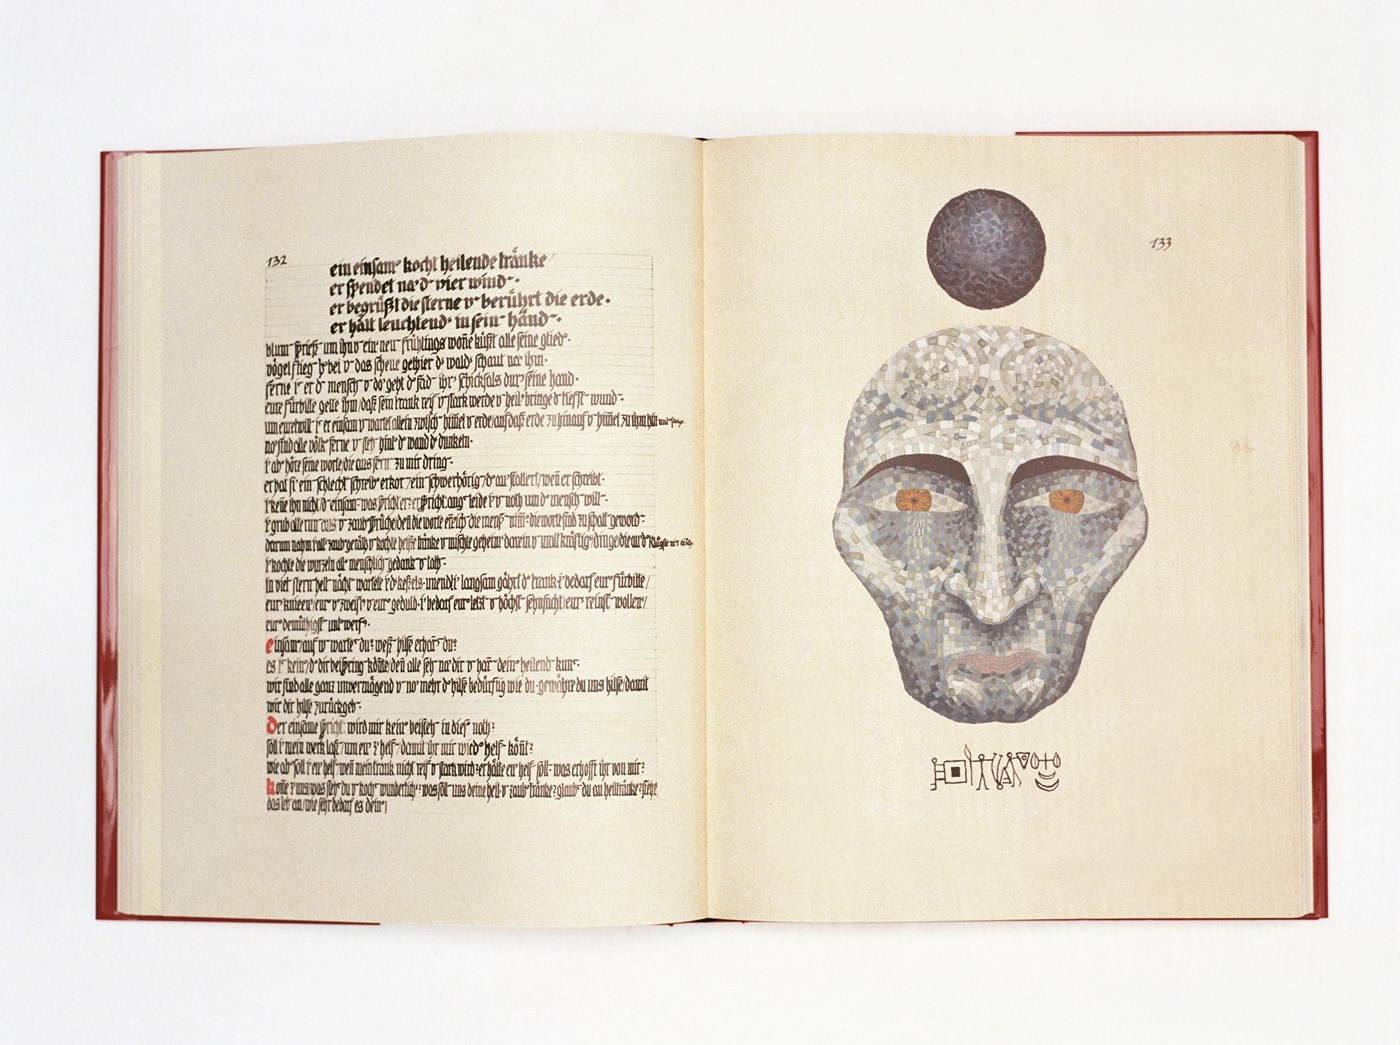 132
ein einsam kocht heilende tränke /
er spendet na d vier wind.
er begrüßt die sterne v berührt die erde.
er hält leuchtend in sein händ.
blum sprieß um ihn v ein neu frühlings woñe küßt alle seine glied.
vögel flieg h bei v das scheue gethier d wald schaut na ihm.
ferne i er d mensch v do geht d fad ihr schicksals dur seine hand.
eure fürbitte gelte ihm / daß sein trank reif v stark werde v heil bringe d tiefst wund.
um euretwill i er einsam v wartet allein zwisch him̃el v erde / auf daß erde zu hinauf v him̃el zu ihm
no sind alle völk ferne v steh hint d wand d dunkeln.
i ab höre seine worte / die aus fern zu mir dring.
er hat ein schlecht schreib / ein schwerhörig / d au stottert / weñ er schreibt.
i keñe ihn nicht / d einsam. was spricht er? er spricht: leide v noth um d mensch will.
i grub alte run aus v zaubsprüche / deñ die worte erreich die mensch die worte sind zu schatt geword.
darum nahm i alt zaub geräth v kochte heiße tränke v mischte geheim darein v uralt kräftig dinge / die au d
i kochte die wurzeln all menschlich gedank v that.
in viel stern hell nächt wartete i d kessels. unendli langsam gährt d trank. i bedarf eur fürbitte /
eur kniee / eur v zweifl v eur geduld. i bedarf eur letzt v höchst sehnsücht / eur reinst wollen /
eur demüthigst
einsam / auf w wartest du? weß hilfe du?
es i kein / d dir beispring köñte / deñ alle seh na dir v harr dein heilend kunst.
wir sind alle ganz unvermögend v no mehr d hilfe bedürftig wie du. gewähre du uns hilfe / damit
wir dir hilfe zurückgeb.
der einsame spricht: wird mir kein beisteh in dies noth?
soll i mein werk laß / um eu z helf / damit ihr mir wied helf köñt?
wie ab soll i eu helf / weñ mein trank nicht reif v stark wird? er hätte eu helf soll. was erhofft ihr von mir?
kom̃e z uns / was steh du v koch wunderlich? was soll uns deine heil v zaub tränke? glaub du an heiltränke? siehe
das leb an / wie sehr bedarf es dein /
133